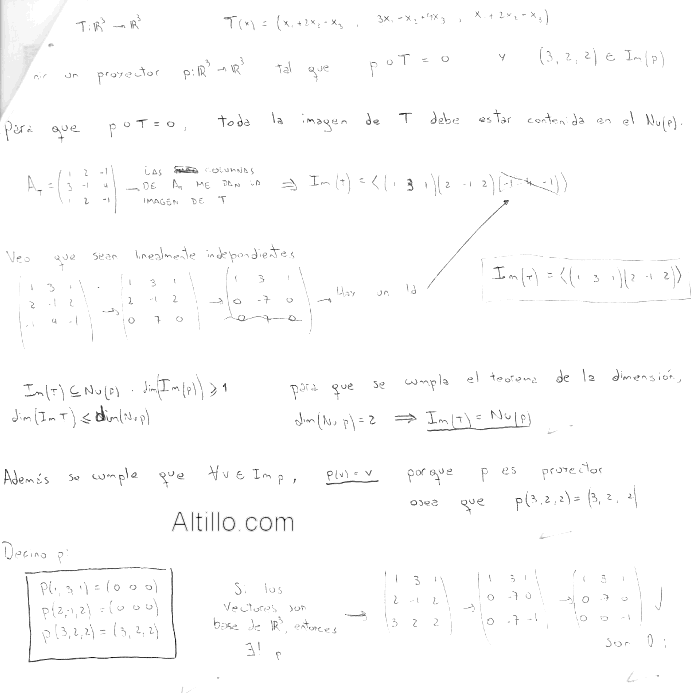 T: ℝ³ → ℝ³ T(x) = (x₁+2x₂-x₃ , 3x₁-x₂+4x₃ , x₁+2x₂-x₃)
un proyector p: ℝ³ → ℝ³ tal que p o T = 0 y (3, 2, 2) ∈ Im(p)
Para que p o T = 0, toda la imagen de T debe estar contenida en el Nu(p).
A_T = (1 2 -1 LAS COLUMNAS
3 -1 4 → DE A_T ME DEN LA ⇒ Im(T) = ⟨(1 3 1)(2 -1 2)(-1 4 -1)⟩
1 2 -1) IMAGEN DE T
Veo que sean linealmente independientes
(1 3 1 (1 3 1 (1 3 1
2 -1 2 → 2 -1 2 → 0 -7 0 → Hay un ld Im(T) = ⟨(1 3 1)(2 -1 2)⟩
-1 4 -1) 0 7 0) 0 7 0)
Im(T) ⊆ Nu(p) . dim(Im(p)) ⩾ 1 para que se cumpla el teorema de la dimensión,
dim(Im T) ⩽ dim(Nu p) dim(Nu p) = 2 ⟹ Im(T) = Nu(p)
Además se cumple que ∀v ∈ Im p, p(v) = v porque p es proyector
osea que p(3,2,2) = (3, 2, 2)
Altillo.com
Defino p:
p(1,3,1) = (0 0 0)
p(2,-1,2) = (0 0 0)
p(3,2,2) = (3,2,2)
Si los
vectores son
base de ℝ³, entonces →
∃! p
(1 3 1 (1 3 1 (1 3 1
2 -1 2 → 0 -7 0 → 0 7 0
3 2 2) 0 -7 -1) 0 0 -1)
son